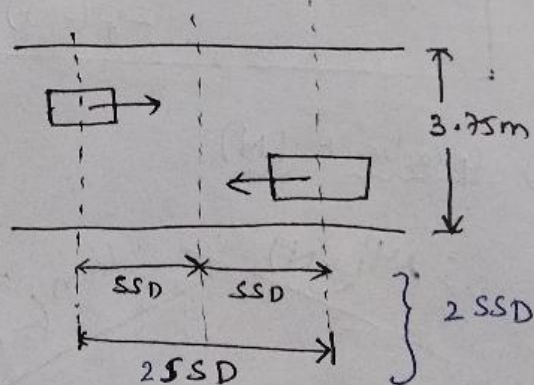 3.75m
SSD SSD
2 SSD
2SSD